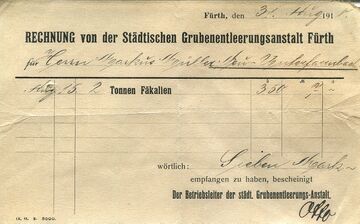 Fürth, den 31. Aug 191
RECHNUNG von der Städtischen Grubenentleerungsanstalt Fürth
für Herrn Markus Müller
Aug 15. 2 Tonnen Fäkalien 3 50 7
wörtlich: Sieben Mark
empfangen zu haben, bescheinigt
Der Betriebsleiter der städt. Grubenentleerungs-Anstalt.
Otto
IX. 11. 5. 5000.